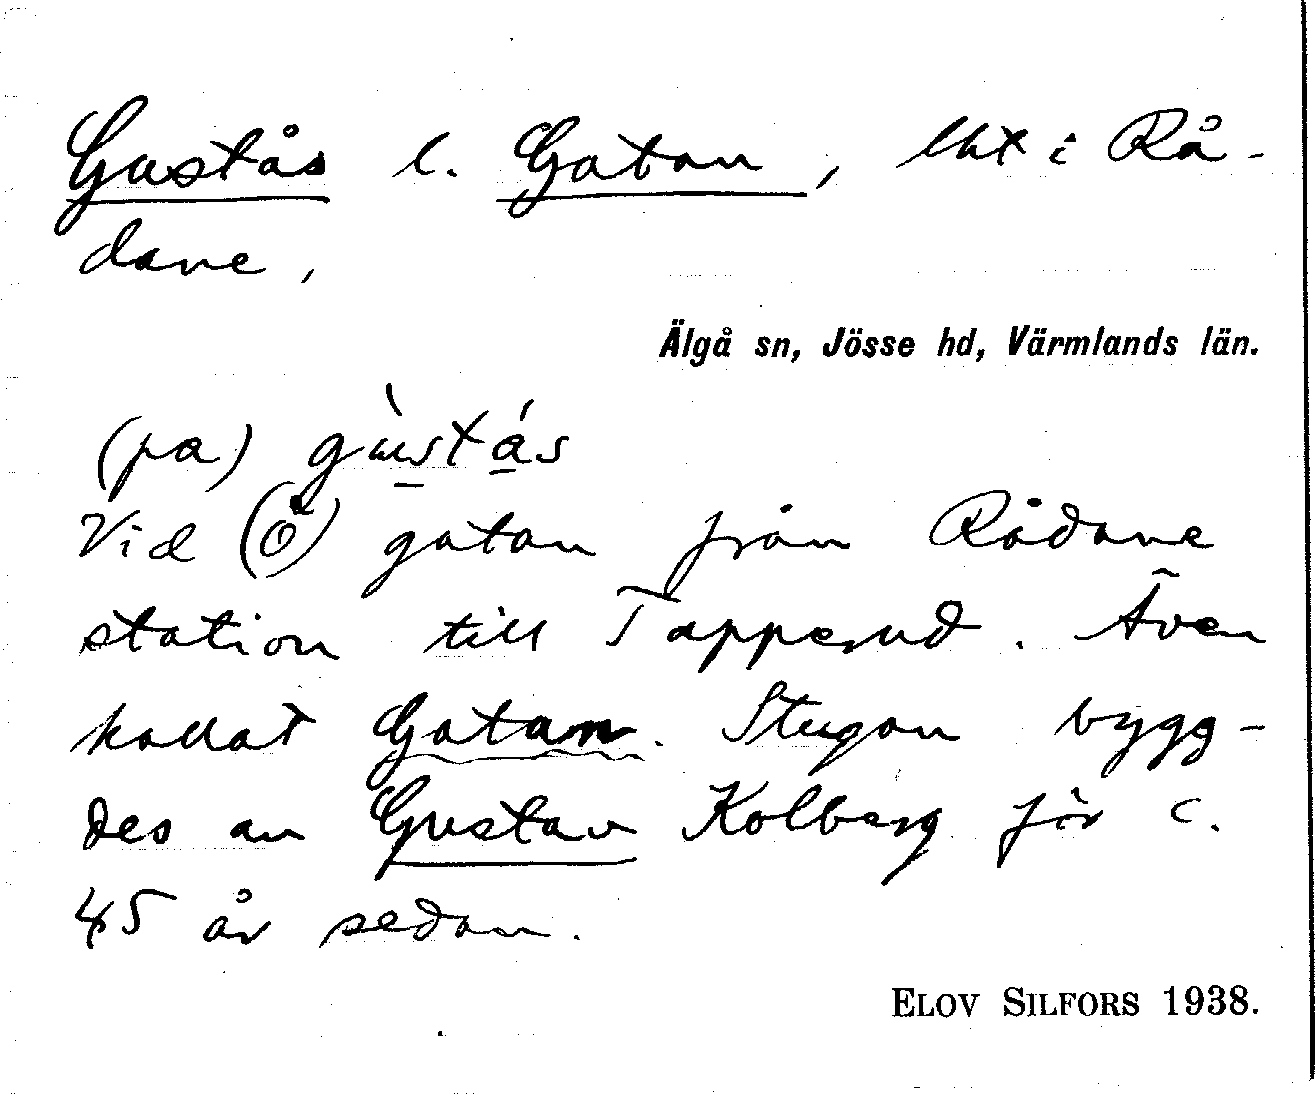 Gustås l. Gatan, lht i Rå-
dane,
Älgå sn, Jösse hd, Värmlands län.
(pa) gùstás
Vid (Ö) gatan från Rådane
station till Tapperud. Även
kallat Gatan. Stugan bygg-
des av Gustav Kolberg för c.
45 år sedan.
ELOV SILFORS 1938.